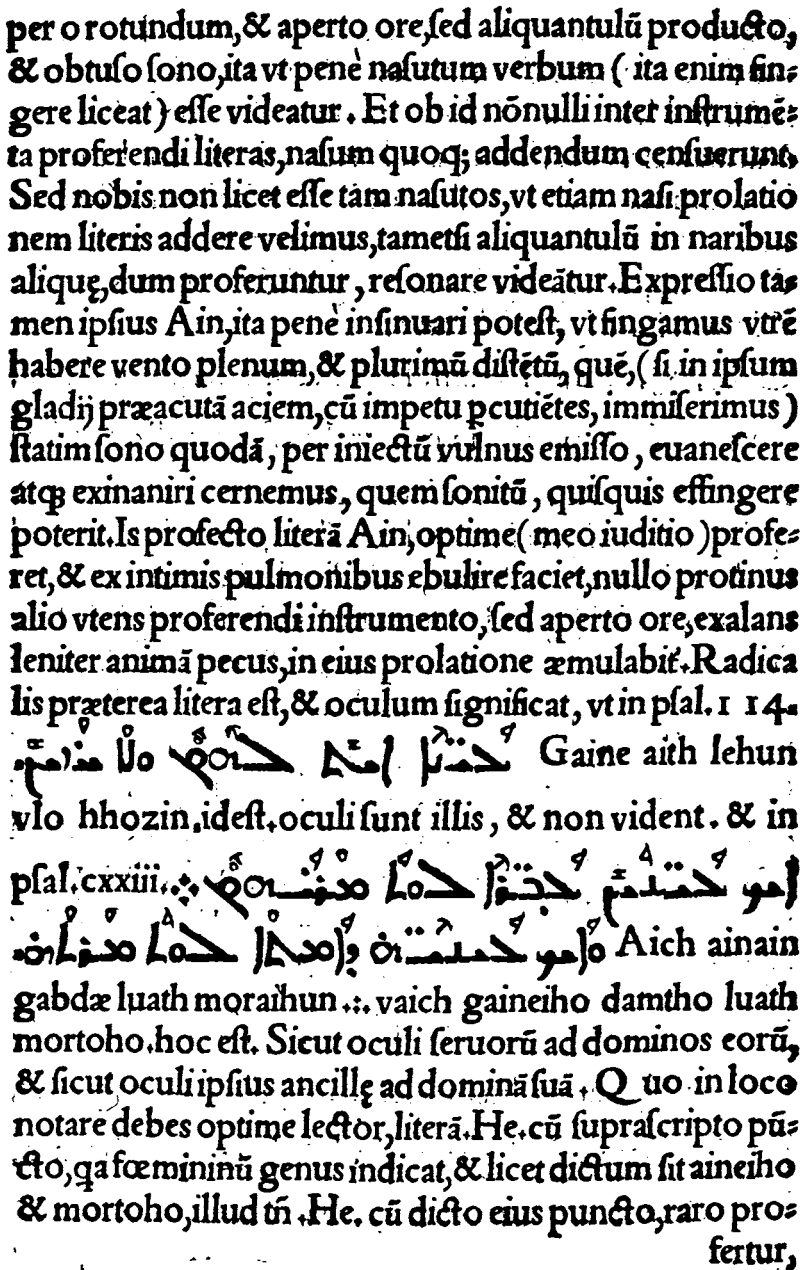 per o rotundum,& aperto ore,ſed aliquantulū producto,
& obtuſo ſono,ita vt penè naſutum verbum ( ita enim fin⸗
gere liceat) eſſe videatur . Et ob id nōnulli inter inſtrumē⸗
ta proferendi literas,naſum quoq; addendum cenſuerunt.
Sed nobis non licet eſſe tam naſutos,vt etiam naſi prolatio
nem literis addere velimus,tametſi aliquantulū in naribus
aliquę,dum proferuntur , reſonare videātur.Expreſſio ta⸗
men ipſius Ain,ita penè inſinuari poteſt, vt fingamus vtrē
habere vento plenum,& plurimū diſtētū, quē,( ſi in ipſum
gladij præacutā aciem,cū impetu ꝑcutiētes, immiſerimus )
ſtatim ſono quodā, per iniectū vulnus emiſſo , euaneſcere
atqꝫ exinaniri cernemus, quem ſonitū , quiſquis effingere
poterit.Is profecto literā Ain,optime( meo iuditio )profe⸗
ret,& ex intimis pulmonibus ebulire faciet,nullo protinus
alio vtens proferendi inſtrumento, ſed aperto ore,exalans
leniter animā pecus,in eius prolatione æmulabit᷑.Radica
lis præterea litera eſt,& oculum ſignificat, vt in pſal. 1 14.
Gaine aith lehun
vlo hhozin.ideſt.oculi ſunt illis , & non vident . & in
pſal.cxxiii.
Aich ainain
gabdæ luath moraihun .:. vaich gaineiho damtho luath
mortoho.hoc eſt. Sicut oculi ſeruorū ad dominos eorū,
& ſicut oculi ipſius ancillę ad dominā ſuā . Quo in loco
notare debes optime lector,literā.He.cū ſupraſcripto pū⸗
cto,qa fœmininū genus indicat,& licet dictum ſit aineiho
& mortoho,illud tñ .He. cū dicto eius puncto,raro pro⸗
fertur,